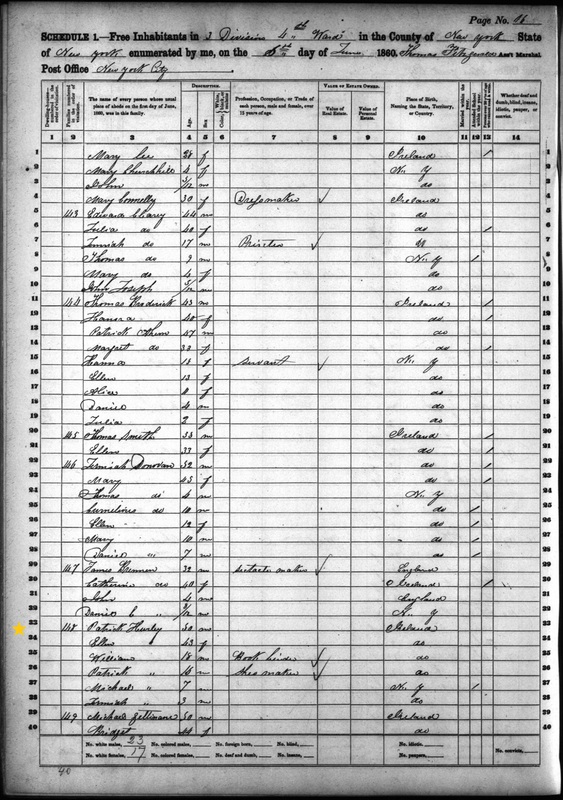 Page No. 26
SCHEDULE 1.—Free Inhabitants in 3 Division 4th Ward in the County of New York State
of New York enumerated by me, on the 6th day of June 1860. Thomas Fitzgerald Ass't Marshal
Post Office New York City
DESCRIPTION.
VALUE OF ESTATE OWNED.
The name of every person whose usual place of abode on the first day of June, 1860, was in this family.
Age.
Sex.
Profession, Occupation, or Trade of each person, male and female, over 15 years of age.
Value of Real Estate.
Value of Personal Estate.
Place of Birth, Naming the State, Territory, or Country.
Married within the year.
Whether deaf and dumb, blind, insane, idiotic, pauper, or convict.
1 2 3 4 5 6 7 8 9 10 11 12 13 14
1 Mary Lee 28 f Ireland /
2 Mary Churchhill 4 f N. Y
3 John 3/12 m do
4 Mary Connelly 30 f Dressmaker Ireland
5 143 Edward Cleary 44 m do
6 Julia do 40 f do /
7 Jermiah do 17 m Printer
8 Thomas do 9 m N. Y /
9 Mary do 4 f do
10 John Joseph m do
11 144 Thomas Broderick 43 m Ireland /
12 Hanora 40 f do /
13 Patrick 47 m do
14 Margret do 33 f do /
15 Hanna f servant N. Y
16 Ellen 13 f do
17 Alice f do
18 Daniel 4 m do
19 Julia 2 f do
20 145 Thomas Smith 33 m Ireland /
21 Ellen 33 f do /
22 146 Jermiah Donovan 52 m do /
23 Mary 43 f do /
24 Thomas do 4 m N. Y
25 Cornelious do 10 m do /
26 Ellen 12 f do /
27 Mary 10 do /
28 Daniel " 7 m do /
29 147 James Brennan 32 m maker England
30 Catherine do 40 f Ireland /
31 John 4 m England
32 Daniel C " 3/12 m N. Y
33 148 Patrick Hurley 50 m Ireland
34 Ellen 43 f do
35 William 18 m Book binder do
36 Patrick " 16 m Shoe maker do
37 Michael " 7 m N. Y /
38 Jermiah " 3 m do
39 149 Michael 50 m Ireland
40 Bridget 44 f do
No. white males, 23 No. colored males, No. foreign born, No. blind, No. idiotic,
No. white females, 17 No. colored females, No. deaf and dumb, No. insane, No. paupers, No. convicts,
40